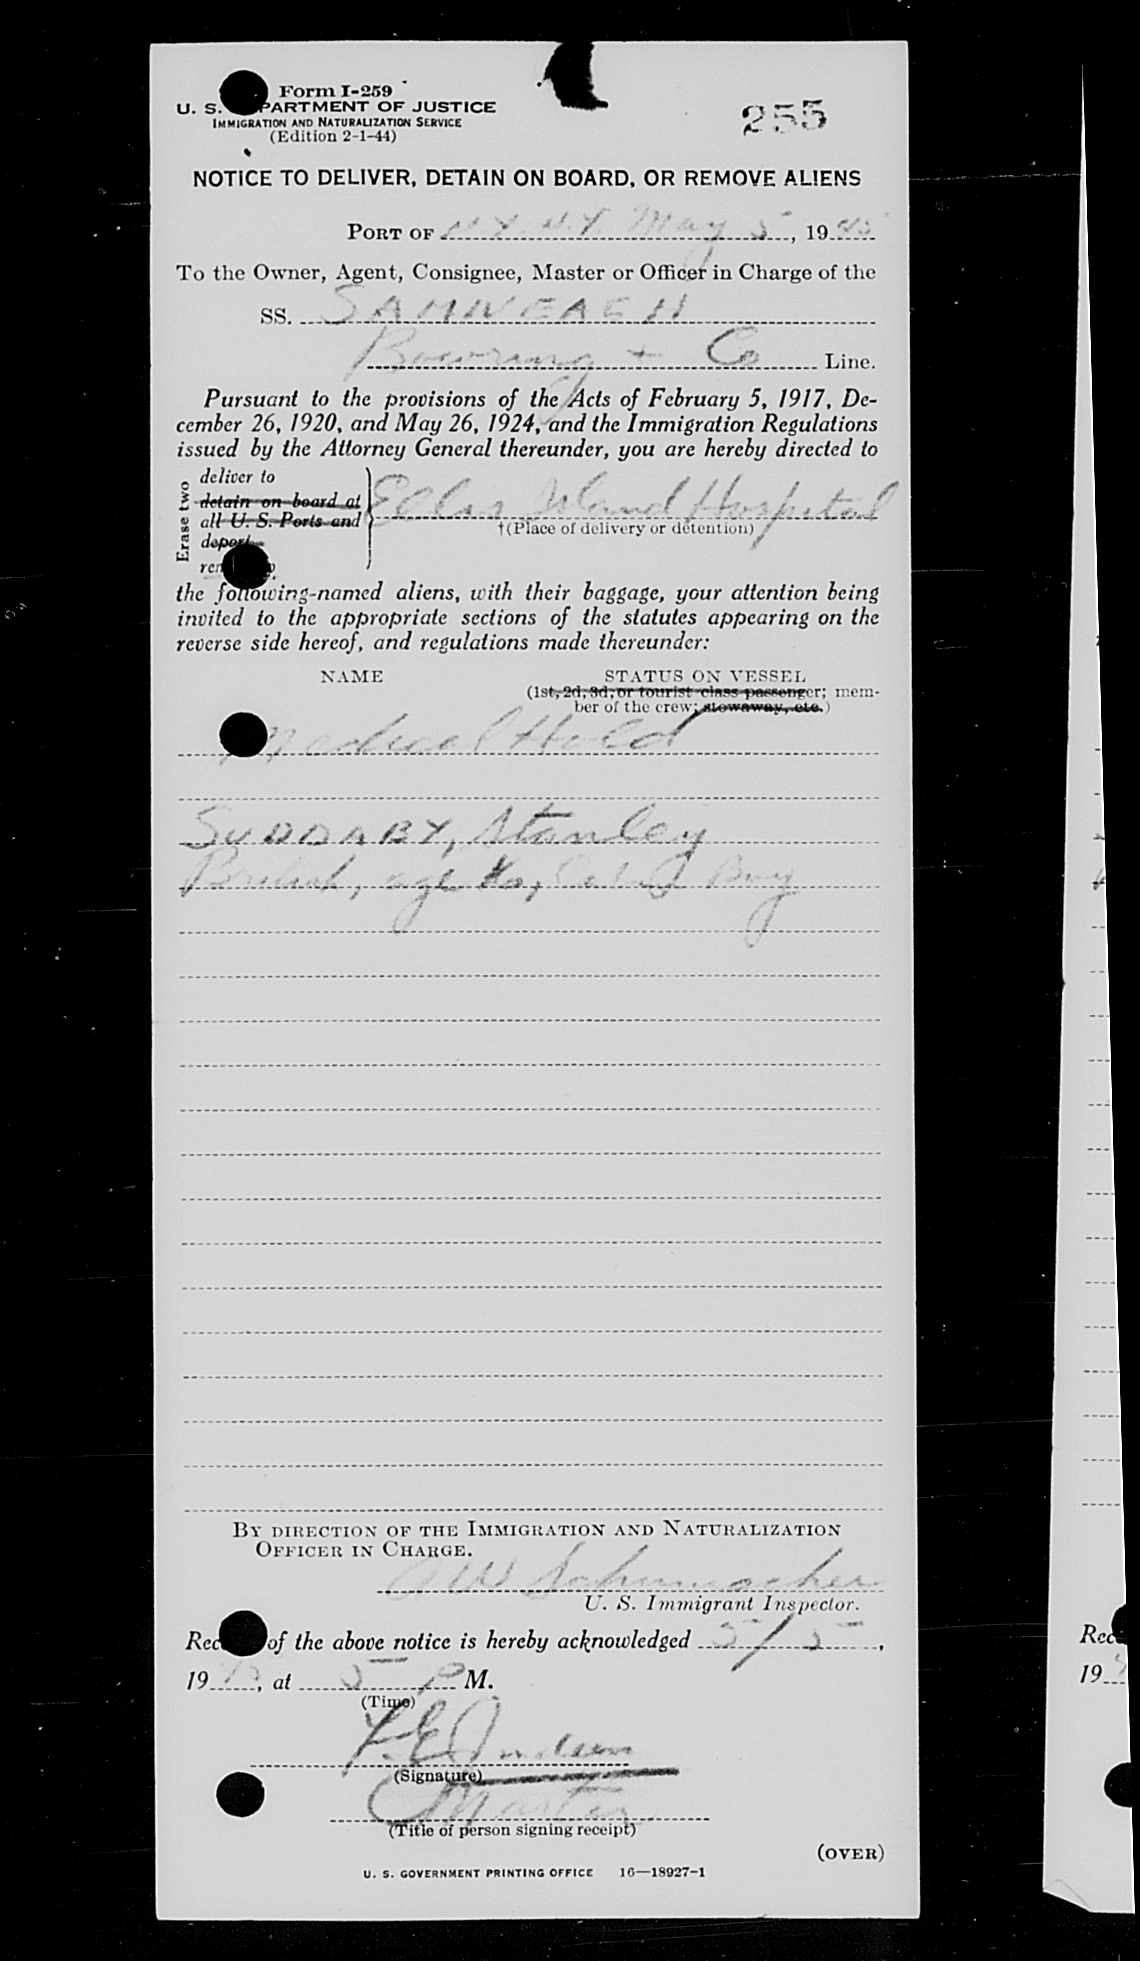 Form I-259
U. S. DEPARTMENT OF JUSTICE
IMMIGRATION AND NATURALIZATION SERVICE
(Edition 2-1-44)
255
NOTICE TO DELIVER, DETAIN ON BOARD, OR REMOVE ALIENS
PORT OF N.Y. N.Y. May 5, 1945
To the Owner, Agent, Consignee, Master or Officer in Charge of the
SS. SAMNEAGH
Bowring + Co Line.
Pursuant to the provisions of the Acts of February 5, 1917, De-
cember 26, 1920, and May 26, 1924, and the Immigration Regulations
issued by the Attorney General thereunder, you are hereby directed to
Erase two
deliver to
detain on board at
all U. S. Ports and
deport
Ellis Island Hospital
†(Place of delivery or detention)
the following-named aliens, with their baggage, your attention being
invited to the appropriate sections of the statutes appearing on the
reverse side hereof, and regulations made thereunder:
NAME STATUS ON VESSEL
(1st, 2d, 3d, or tourist class passenger; mem-
ber of the crew; stowaway, etc.)
Medical Hold
SUDDABY, Stanley
British, age Boy
BY DIRECTION OF THE IMMIGRATION AND NATURALIZATION
OFFICER IN CHARGE.
Schumacher
U. S. Immigrant Inspector.
Rec of the above notice is hereby acknowledged 5/5,
19 , at 5 P M.
(Time)
(Signature)
Master
(Title of person signing receipt)
(OVER)
U. S. GOVERNMENT PRINTING OFFICE 16—18927-1
Rec
19